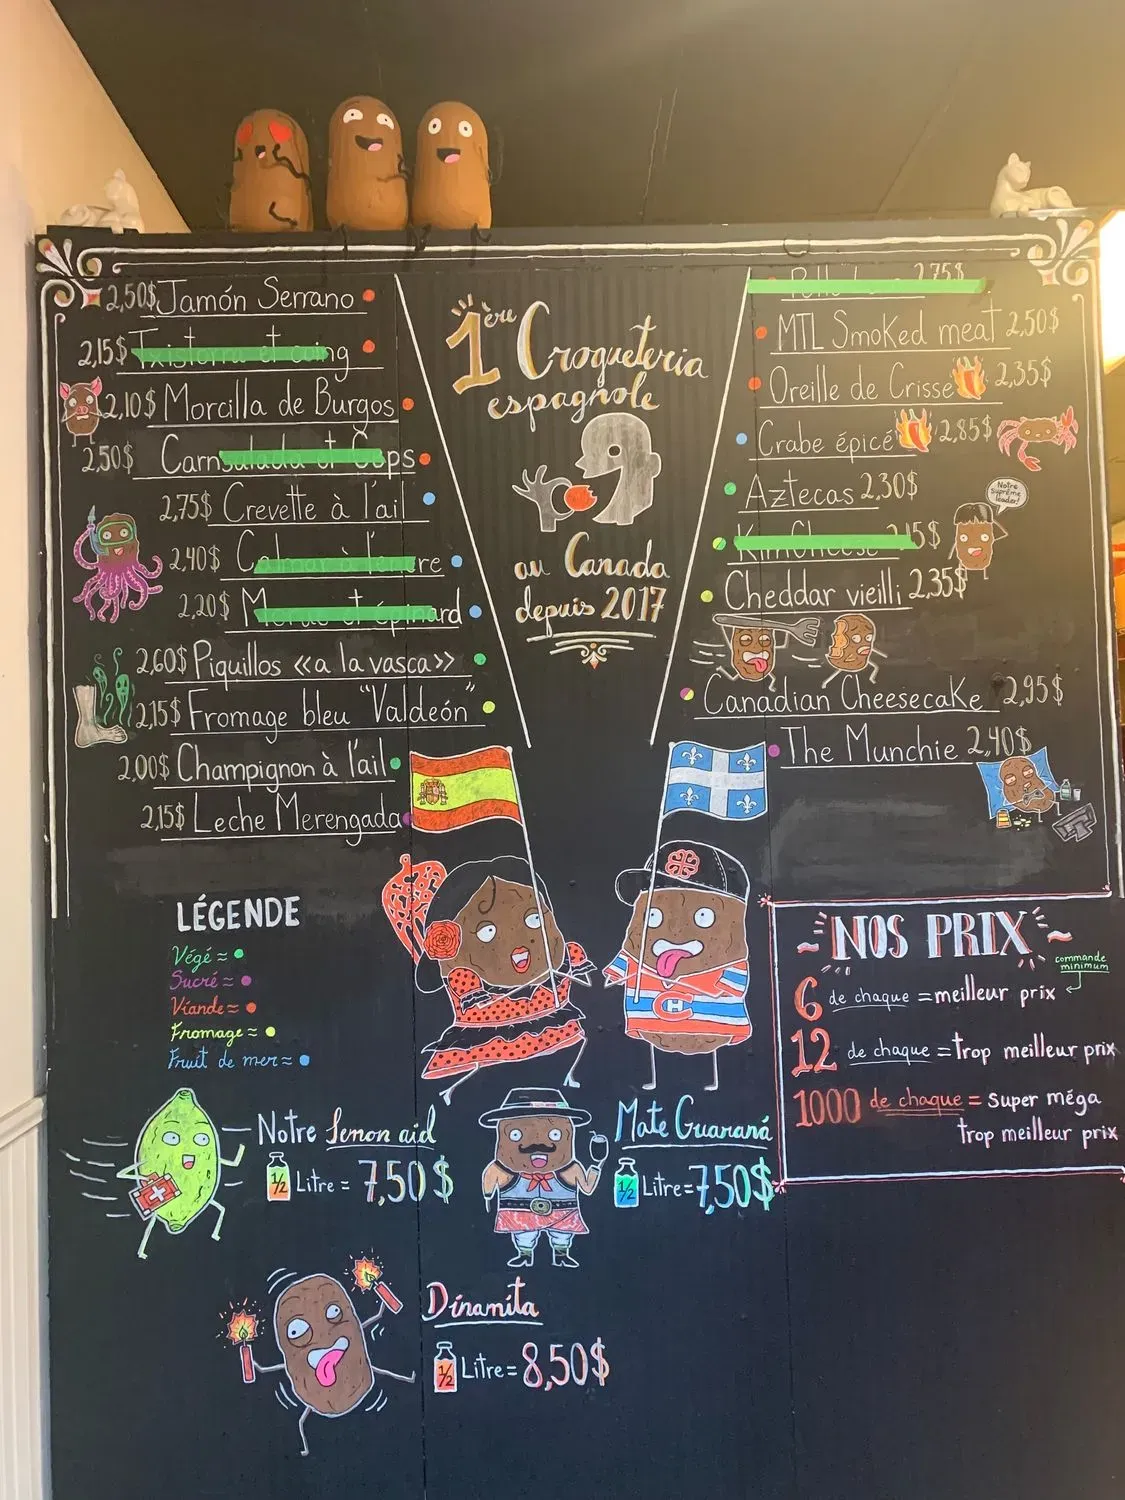 2,50$ Jamón Serrano
2,15$ Txistorra et coing
2,10$ Morcilla de Burgos
2,50$ Carnsalada et Ceps
2,75$ Crevette à l'ail
2,40$ Calmar à l'encre
2,20$ Morue et épinard
2,60$ Piquillos «a la vasca»
2,15$ Fromage bleu "Valdeón"
2,00$ Champignon à l'ail
2,15$ Leche Merengada
1ère Croqueteria
espagnole
au Canada
depuis 2017
2,75$
MTL Smoked meat 2,50$
Oreille de Crisse 2,35$
Crabe épicé 2,85$
Aztecas 2,30$
KimCheese 2,15$
Notre
suprême
leader!
Cheddar vieilli 2,35$
Canadian Cheesecake 2,95$
The Munchie 2,40$
LÉGENDE
Végé =
Sucré =
Viande =
Fromage =
Fruit de mer =
NOS PRIX
commande
minimum
6 de chaque = meilleur prix
12 de chaque = trop meilleur prix
1000 de chaque = super méga
trop meilleur prix
C H
Notre Lemon aid
1/2 Litre = 7,50$
Mate Guaraná
1/2 Litre = 7,50$
Dinamita
1/2 Litre = 8,50$